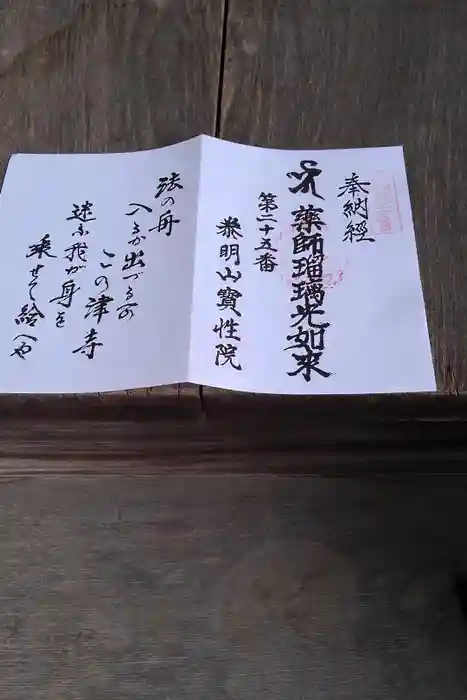 奉納經
薬師瑠璃光如来
第二十五番
明山寳性院
法の舟
入るか出づるか
この津寺
迷ふ我が身を
乗せて給へや